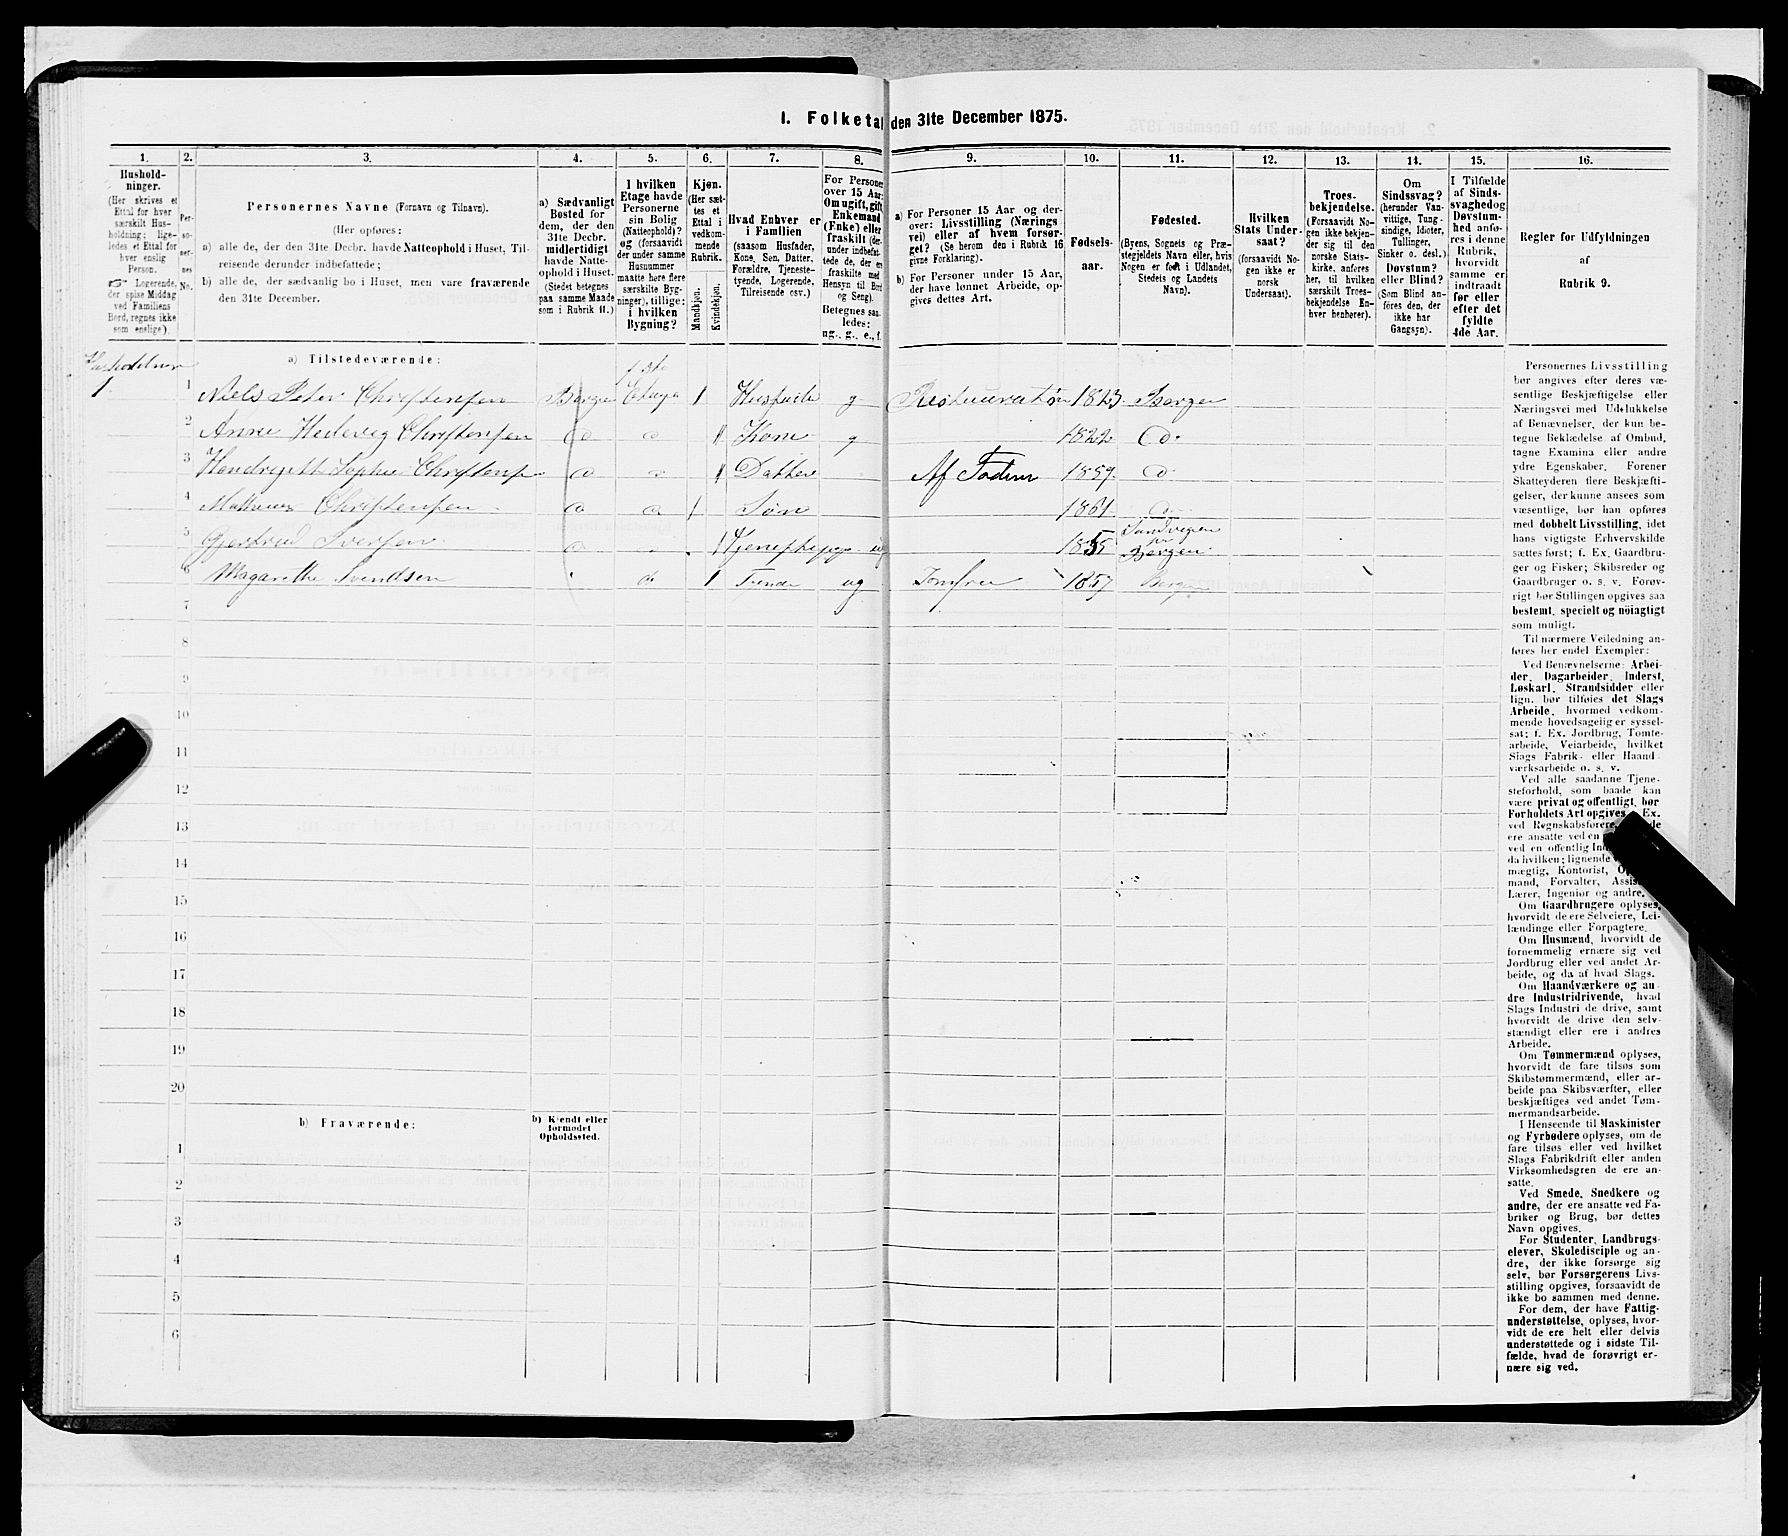 1. Folketal den 31te December 1875.
1. 2. 3. 4. 5. 6. 7. 8. 9. 10. 11. 12. 13. 14. 15. 16.
Hushold-
ninger.
(Her skrives et
Ettal for hver
særskilt Hus-
holdning; lige-
ledes et Ettal for
hver enslig
Person.
☞ Logerende,
der spise Middag
ved Familiens
Bord, regnes ikke
som enslige).
Per-
so-
ner-
nes
No.
Personernes Navne (Fornavn og Tilnavn).
(Her opføres:
a) alle de, der den 31te Decbr. havde Natteophold i Huset, Til-
reisende derunder indbefattede;
b) alle de, der sædvanlig bo i Huset, men vare fraværende
den 31te December.
a) Sædvanligt
Bosted for
dem, der den
31te Decbr.
midlertidigt
havde Natte-
ophold i Huset.
(Stedet betegnes
paa samme Maade
som i Rubrik 11.)
I hvilken
Etage havde
Personerne
sin Bolig
(Natteophold)?
og (forsaavidt
der under samme
Husnummer
maatte høre flere
særskilte Byg-
ninger), tillige:
i hvilken
Bygning?
Kjøn.
(Her sæt-
tes et
Ettal i
vedkom-
mende
Rubrik.
Mandkjøn.
Kvindekjøn.
Hvad Enhver er
i Familien
(saasom Husfader,
Kone, Søn, Datter,
Forældre, Tjeneste-
tyende, Logerende,
Tilreisende osv.)
For Personer
over 15 Aar:
Om ugift, gift,
Enkemand
(Enke) eller
fraskilt (der-
under indbefat-
tede de, der ere
fraskilte med
Hensyn til Bord
og Seng).
Betegnes saa-
ledes:
ug., g., e., f.
a) For Personer 15 Aar og der-
over: Livsstilling (Nærings-
vei) eller af hvem forsør-
get? (Se herom den i Rubrik 16
givne Forklaring).
b) For Personer under 15 Aar,
der have lønnet Arbeide, op-
gives dettes Art.
Fødsels-
aar.
Fødested.
(Byens, Sognets og Præ-
stegjeldets Navn eller, hvis
Nogen er født i Udlandet,
Stedets og Landets
Navn).
Hvilken
Stats Under-
saat?
(forsaavidt No-
gen ikke er
norsk
Undersaat).
Troes-
bekjendelse.
(Forsaavidt No-
gen ikke bekjen-
der sig til den
norske Stats-
kirke, anføres
her, til hvilken
særskilt Troes-
bekjendelse En-
hver henhører).
Om
Sindssvag?
(herunder Van-
vittige, Tung-
sindige, Idioter,
Tullinger,
Sinker o. desl.)
Døvstum?
eller Blind?
(Som Blind an-
føres den, der
ikke har
Gangsyn).
I Tilfælde
af Sinds-
svaghed og
Døvstum-
hed anfø-
res i denne
Rubrik,
hvorvidt
samme er
indtraadt
før eller
efter det
fyldte
4de Aar.
Regler for Udfyldningen
af
Rubrik 9.
a) Tilstedeværende:
1 1 Niels Peter Christensen Bergen Etage 1 Husfader g Restauratør 1823 Bergen
2 Anne Hedevig Christensen do do 1 Kone g 1822 do
3 Hendrigette Sophie Christens do 1 Datter Af Faderen 1859 do
4 Mathæus Christensen do do 1 Søn 1861 do
5 Gjertrud Iversen do 1 Tjenestepige ug 1855 Sandvigen pr Bergen
6 Magarethe Svendsen do 1 ug Jomfru 1857 Bergen
7
8
9
10
11
12
13
14
15
16
17
18
19
20
b) Fraværende:
b) Kjendt eller
formodet
Opholdssted.
1
2
3
4
5
6
Personernes Livsstilling
bør angives efter deres væ-
sentlige Beskjæftigelse eller
Næringsvei med Udelukkelse
af Benævnelser, der kun be-
tegne Beklædelse af Ombud,
tagne Examina eller andre
ydre Egenskaber. Forener
Skatteyderen flere Beskjæfti-
gelser, der kunne ansees som
væsentlige, bør han opføres
med dobbelt Livsstilling, idet
hans vigtigste Erhvervskilde
sættes først; f. Ex. Gaardbru-
ger og Fisker; Skibsreder og
Gaardbruger o. s. v. Forøv-
rigt bør Stillingen opgives saa
bestemt, specielt og nöiagtigt
som muligt.
Til nærmere Veiledning an-
føres her endel Exempler:
Ved Benævnelserne: Arbei-
der, Dagarbeider, Inderst,
Løskarl, Strandsidder eller
lign. bør tilføies det Slags
Arbeide, hvormed vedkom-
mende hovedsagelig er syssel-
sat; f. Ex. Jordbrug, Tomte-
arbeide, Veiarbeide, hvilket
Slags Fabrik- eller Haand-
værksarbeide o. s. v.
Ved alle saadanne Tjene-
steforhold, som baade kan
være privat og offentligt, bør
Forholdets Art opgives Ex.
ved Regnskabsførere,
ere ansatte ved en
ved en offentlig
da hvilken; lignende
mægtig, Kontorist,
mand, Forvalter,
Lærer, Ingeniør og andre.
Om Gaardbrugere oplyses,
hvorvidt de ere Selveiere, Lei-
lændinge eller Forpagtere.
Om Husmænd, hvorvidt de
fornemmelig ernære sig ved
Jordbrug eller ved andet Ar-
beide, og da af hvad Slags.
Om Haandværkere og an-
dre Industridrivende, hvad
Slags Industri de drive, samt
hvorvidt de drive den selv-
stændigt eller ere i andres
Arbeide.
Om Tømmermænd oplyses,
hvorvidt de fare tilsøs som
Skibstømmermænd, eller ar-
beide paa Skibsværfter, eller
beskjæftiges ved andet Tøm-
mermandsarbeide.
I Henseende til Maskinister
og Fyrbødere oplyses, om de
fare tilsøs eller ved hvilket
Slags Fabrikdrift eller anden
Virksomhedsgren de ere an-
satte.
Ved Smede, Snedkere og
andre, der ere ansatte ved Fa-
briker og Brug, bør dettes
Navn opgives.
For Studenter, Landbrugs-
elever, Skoledisciple og an-
dre, der ikke forsørge sig
selv, bør Forsørgerens Livs-
stilling opgives, forsaavidt de
ikke bo sammen med denne.
For dem, der have Fattig-
understøttelse, oplyses, hvor-
vidt de ere helt eller delvis
understøttede og i sidste Til-
fælde, hvad de forøvrigt er-
nære sig ved.